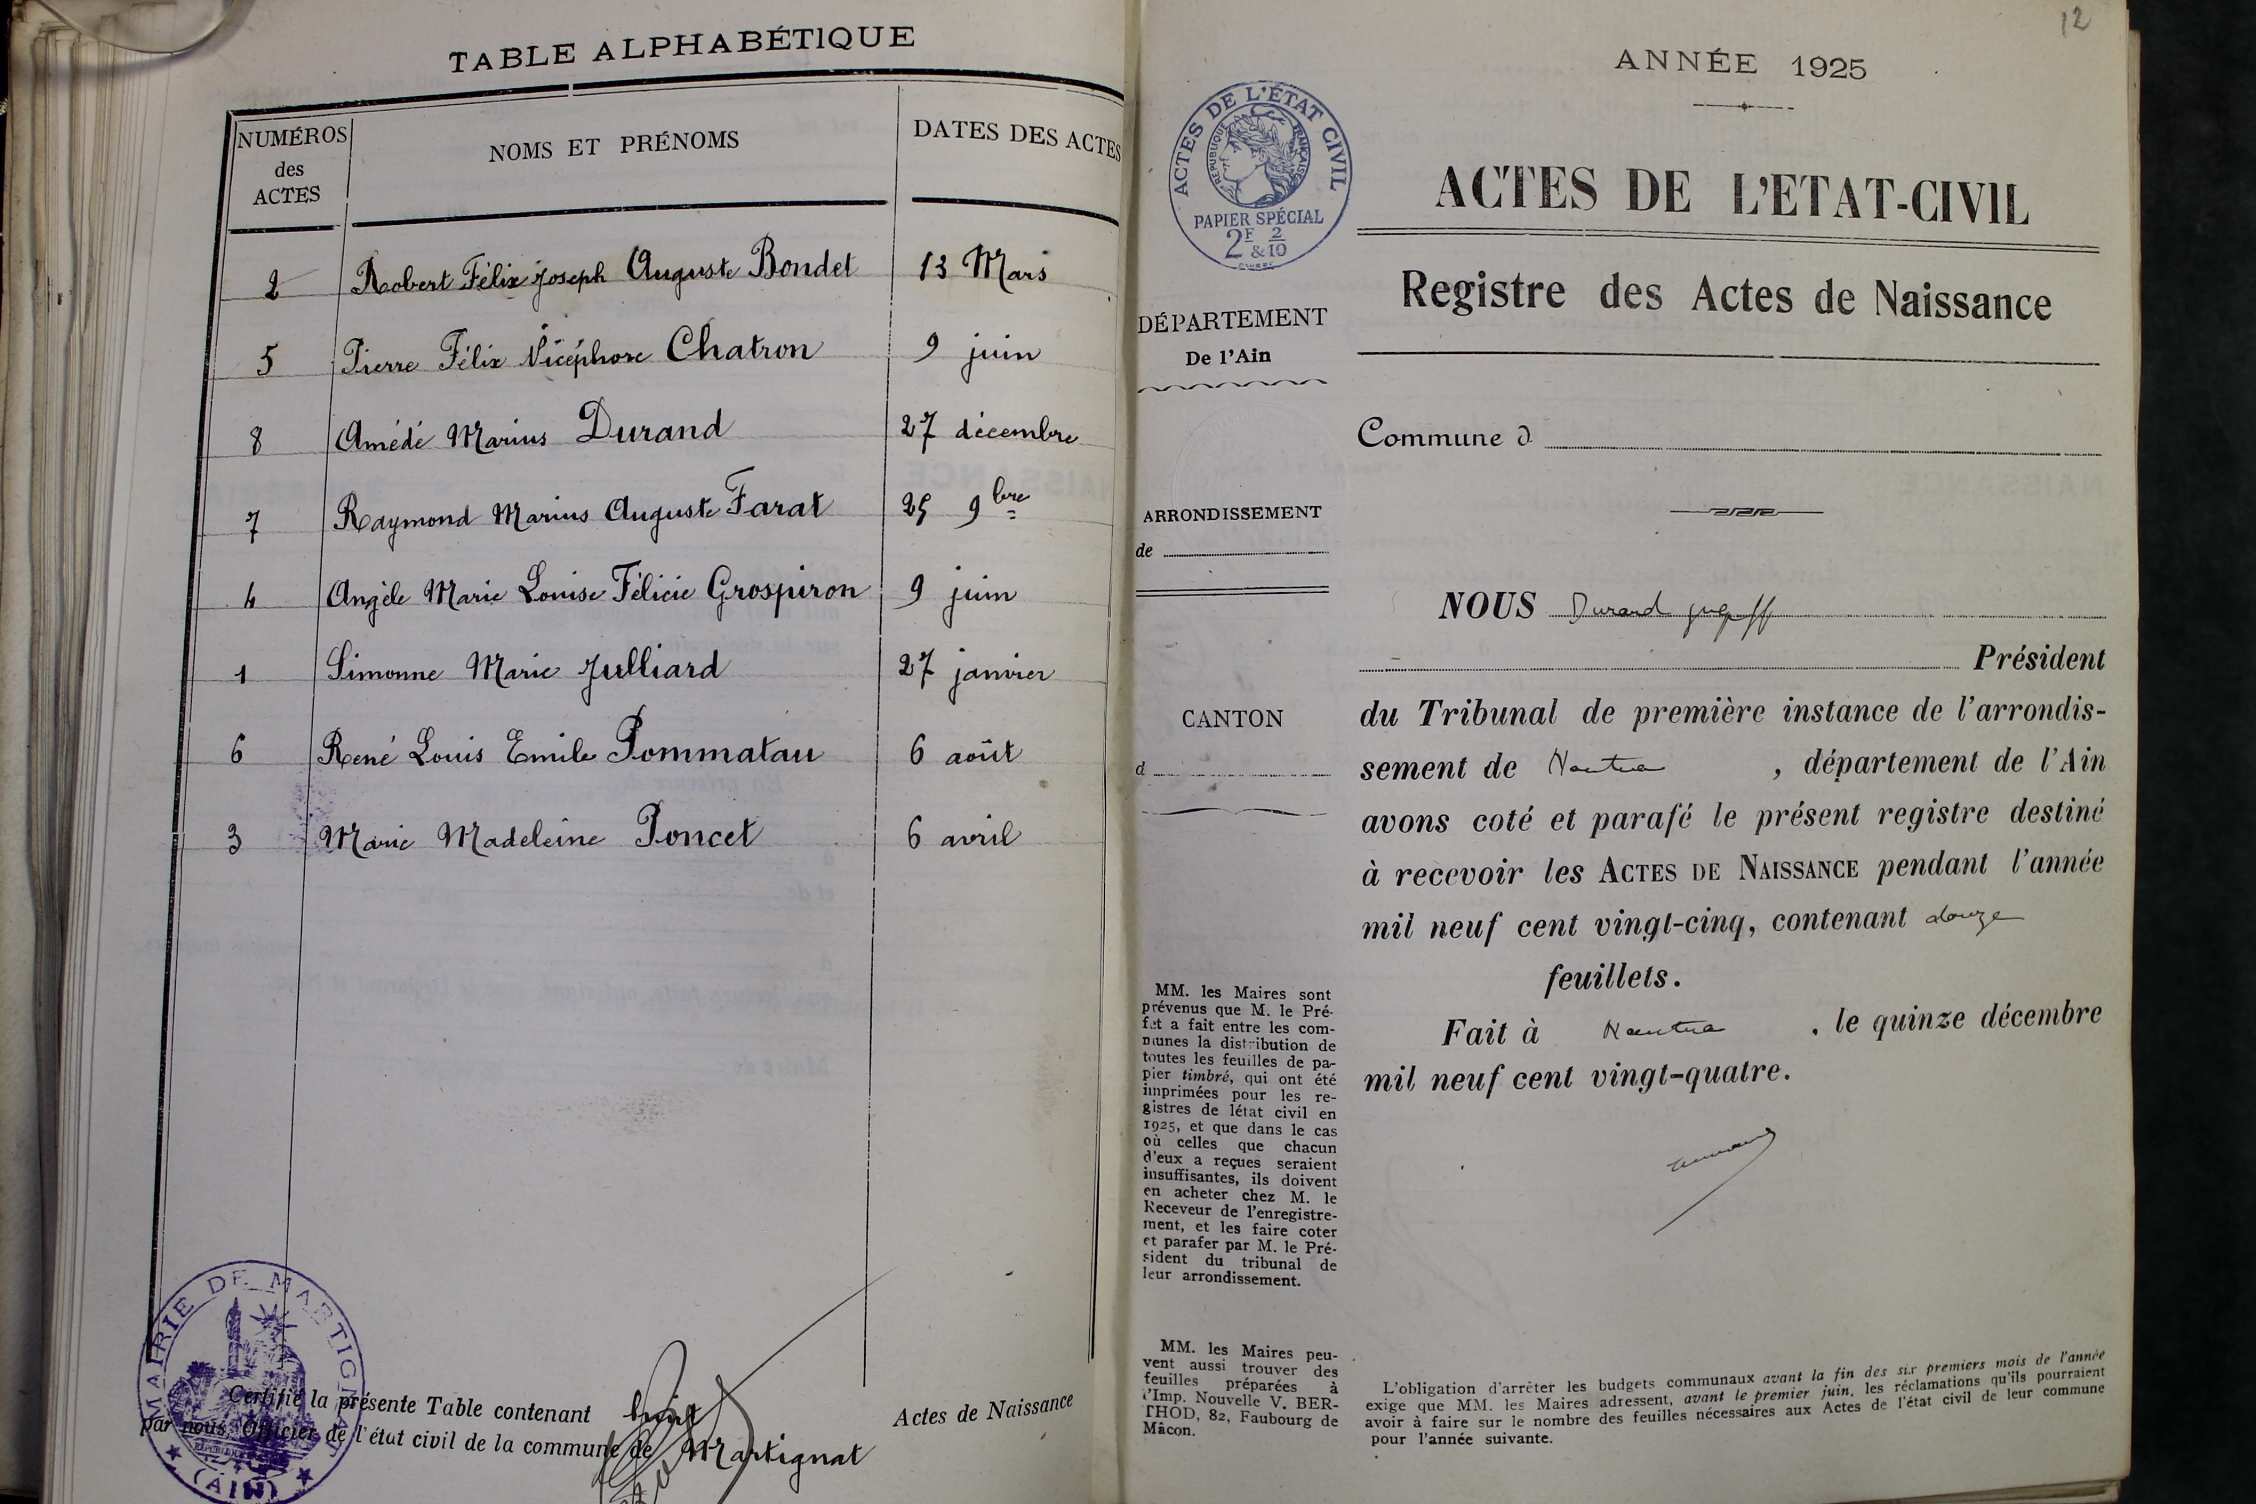 TABLE ALPHABÉTIQUE
NUMÉROS
des
ACTES
NOMS ET PRÉNOMS
DATES DES ACTES
2 Robert Félix Joseph Auguste Bondet 13 Mars
5 Pierre Félix Nicéphore Chatron 9 juin
8 Amédé Marius Durand 27 décembre
7 Raymond Marius Auguste Farat 25 9bre
4 Angèle Marie Louise Félicie Grospiron 9 juin
1 Simonne Marie Julliard 27 janvier
6 René Louis Emile Pommatau 6 août
3 Marie Madeleine Poncet 6 avril
MAIRIE DE MARTIGNAT
(AIN)
Certifié la présente Table contenant huit Actes de Naissance
par nous, Officier de l'état civil de la commune de Martignat
12
ANNÉE 1925
ACTES DE L'ÉTAT CIVIL
REPUBLIQUE FRANÇAISE
PAPIER SPÉCIAL
2F & 2/10
ACTES DE L'ETAT-CIVIL
Registre des Actes de Naissance
DÉPARTEMENT
De l'Ain
Commune d
ARRONDISSEMENT
de
CANTON
d
NOUS Durand
Président
du Tribunal de première instance de l'arrondis-
sement de Nantua , département de l'Ain
avons coté et parafé le présent registre destiné
à recevoir les ACTES DE NAISSANCE pendant l'année
mil neuf cent vingt-cinq, contenant douze
feuillets.
Fait à Nantua , le quinze décembre
mil neuf cent vingt-quatre.
MM. les Maires sont
prévenus que M. le Pré-
fet a fait entre les com-
munes la distribution de
toutes les feuilles de pa-
pier timbré, qui ont été
imprimées pour les re-
gistres de létat civil en
1925, et que dans le cas
où celles que chacun
d'eux a reçues seraient
insuffisantes, ils doivent
en acheter chez M. le
Receveur de l'enregistre-
ment, et les faire coter
et parafer par M. le Pré-
sident du tribunal de
leur arrondissement.
MM. les Maires peu-
vent aussi trouver des
feuilles préparées à
l'Imp. Nouvelle V. BER-
THOD, 82, Faubourg de
Mâcon.
L'obligation d'arrêter les budgets communaux avant la fin des six premiers mois de l'année
exige que MM. les Maires adressent, avant le premier juin, les réclamations qu'ils pourraient
avoir à faire sur le nombre des feuilles nécessaires aux Actes de l'état civil de leur commune
pour l'année suivante.